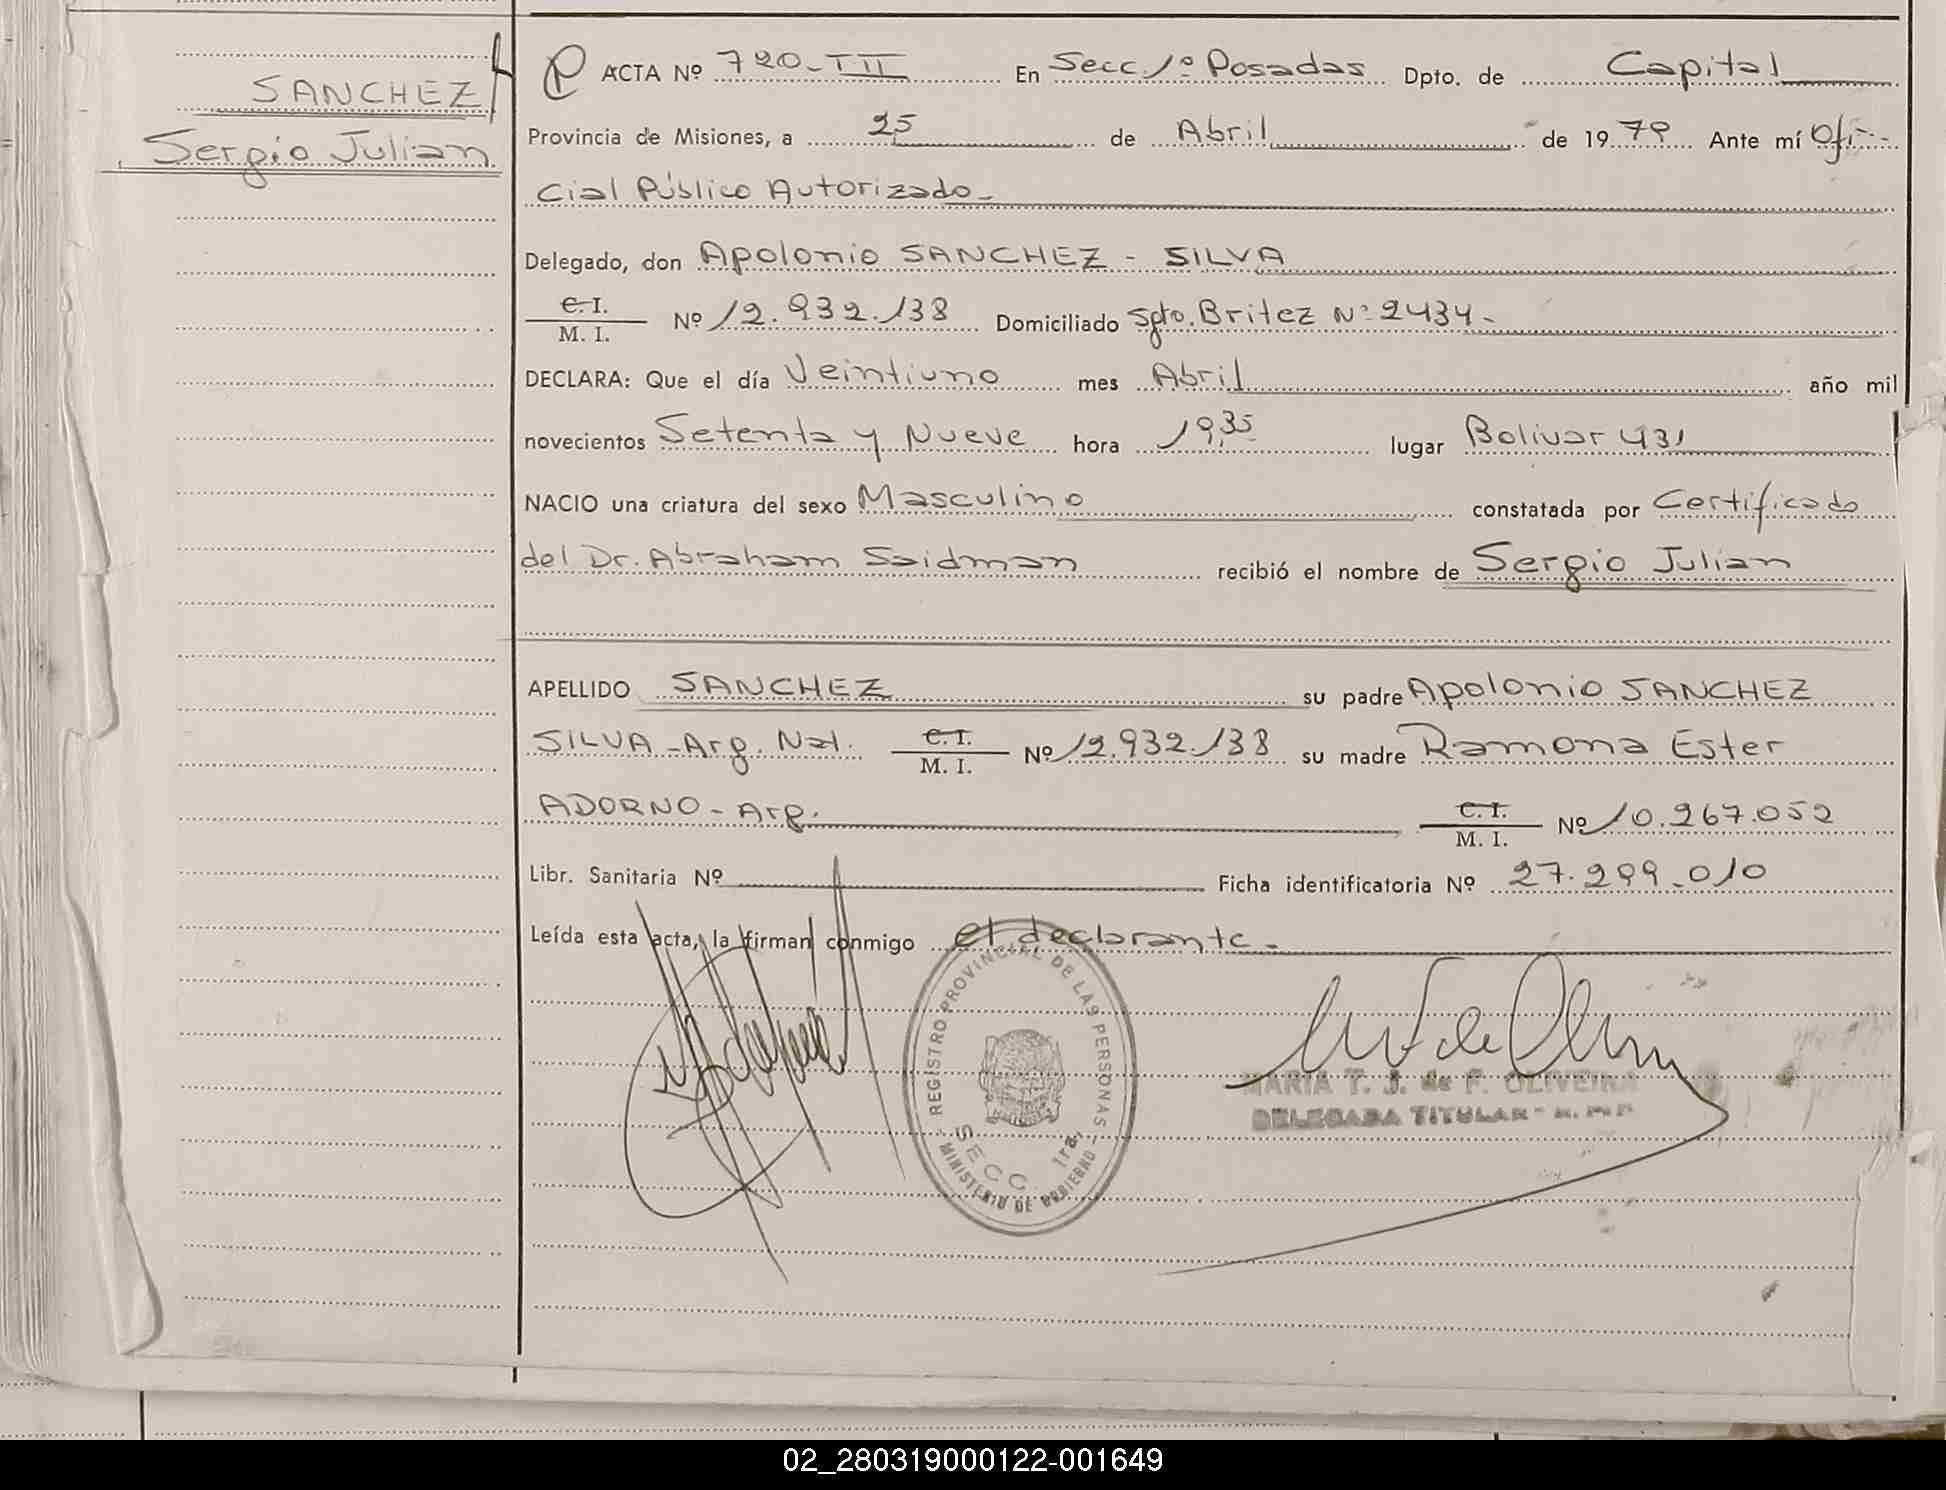 SANCHEZ
Sergio Julian
ACTA Nº 720-TII En Secc. 1º Posadas Dpto. de Capital
Provincia de Misiones, a 25 de Abril de 1979 Ante mí Ofi-
cial Público Autorizado.
Delegado, don Apolonio SANCHEZ - SILVA
C. I.
M. I. Nº 12.932.138 Domiciliado Sgto. Britez Nº 2434.
DECLARA: Que el día Veintiuno mes Abril año mil
novecientos Setenta y Nueve hora 19,35 lugar Bolivar 431
NACIO una criatura del sexo Masculino constatada por Certificado
del Dr. Abraham Saidman recibió el nombre de Sergio Julian
APELLIDO SANCHEZ su padre Apolonio SANCHEZ
SILVA - Arg. Nat. C. I. M. I. Nº 12.932.138 su madre Ramona Ester
ADORNO - Arg. C. I. M. I. Nº 10.267.052
Libr. Sanitaria Nº Ficha identificatoria Nº 27.299.010
Leída esta acta, la firman conmigo el declarante.
REGISTRO PROVINCIAL DE LAS PERSONAS
SECC 1ra.
MINISTERIO DE GOBIERNO
MARIA T. J. de F. OLIVEIRA
DELEGADA TITULAR
02_280319000122-001649